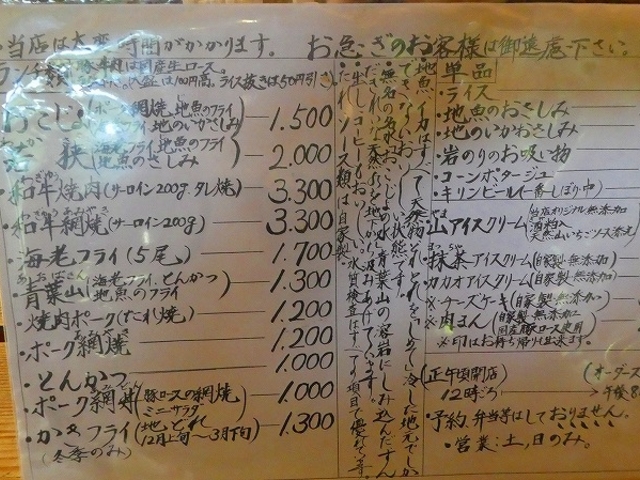 ・当店は大変時間がかかります。 お急ぎのお客様は御遠慮下さい。
ランチ類
豚、牛肉は国産生ロース。
大盛は100円高。ライス抜きは50円引き
おこじょ(ポーク網焼、地魚のフライ
海老フライ、地のいかさしみ)― 1.500
若狭(海老フライ、地魚のフライ
地魚のさしみ)― 2.000
・和牛焼肉(サーロイン200g.タレ焼)― 3.300
・和牛網焼(サーロイン200g)― 3.300
・海老フライ(5尾)― 1.700
・青葉山(海老フライ、とんかつ
地魚のフライ)― 1.300
・焼肉ポーク(たれ焼)― 1.200
・ポーク網焼― 1.200
・とんかつ― 1.000
・ポーク網丼(豚ロースの網焼
ミニサラダ)― 1.000
・かきフライ(地、どれ
12月上旬〜3月下旬)― 1.300
(冬季のみ)
地魚、イカはすべて天然物
どれどれをしめて冷した地元でしか
できないおいしい状態です。
・無名の名水おこじょの水、青葉山の溶岩にしみ込んだすん
だきれいな天然水を地下から汲みあげています。
生出しコーヒーもおいしい。水質検査はすべての項目で優れています。
たれ、ソース類は自家製。
単品
・ライス
・地魚のおさしみ
・地のいかおさしみ
・岩のりのお吸い物
・コーンポタージュ
・キリンビール(一番しぼり中)
山アイスクリーム(当店オリジナル無添加
酒粕入
天然山いちごソース添え)
抹茶アイスクリーム(自家製・無添加)
・カカオアイスクリーム(自家製・無添加)
※・チーズケーキ(自家製・無添加)
※・肉まん(自家製・無添加
国産豚ロース使用)
※印はお持ち帰り出来ます。
(正午頃開店)
12時ごろ
(オーダース
→午後8
・予約、弁当等はしておりません。
・営業:土、日のみ。